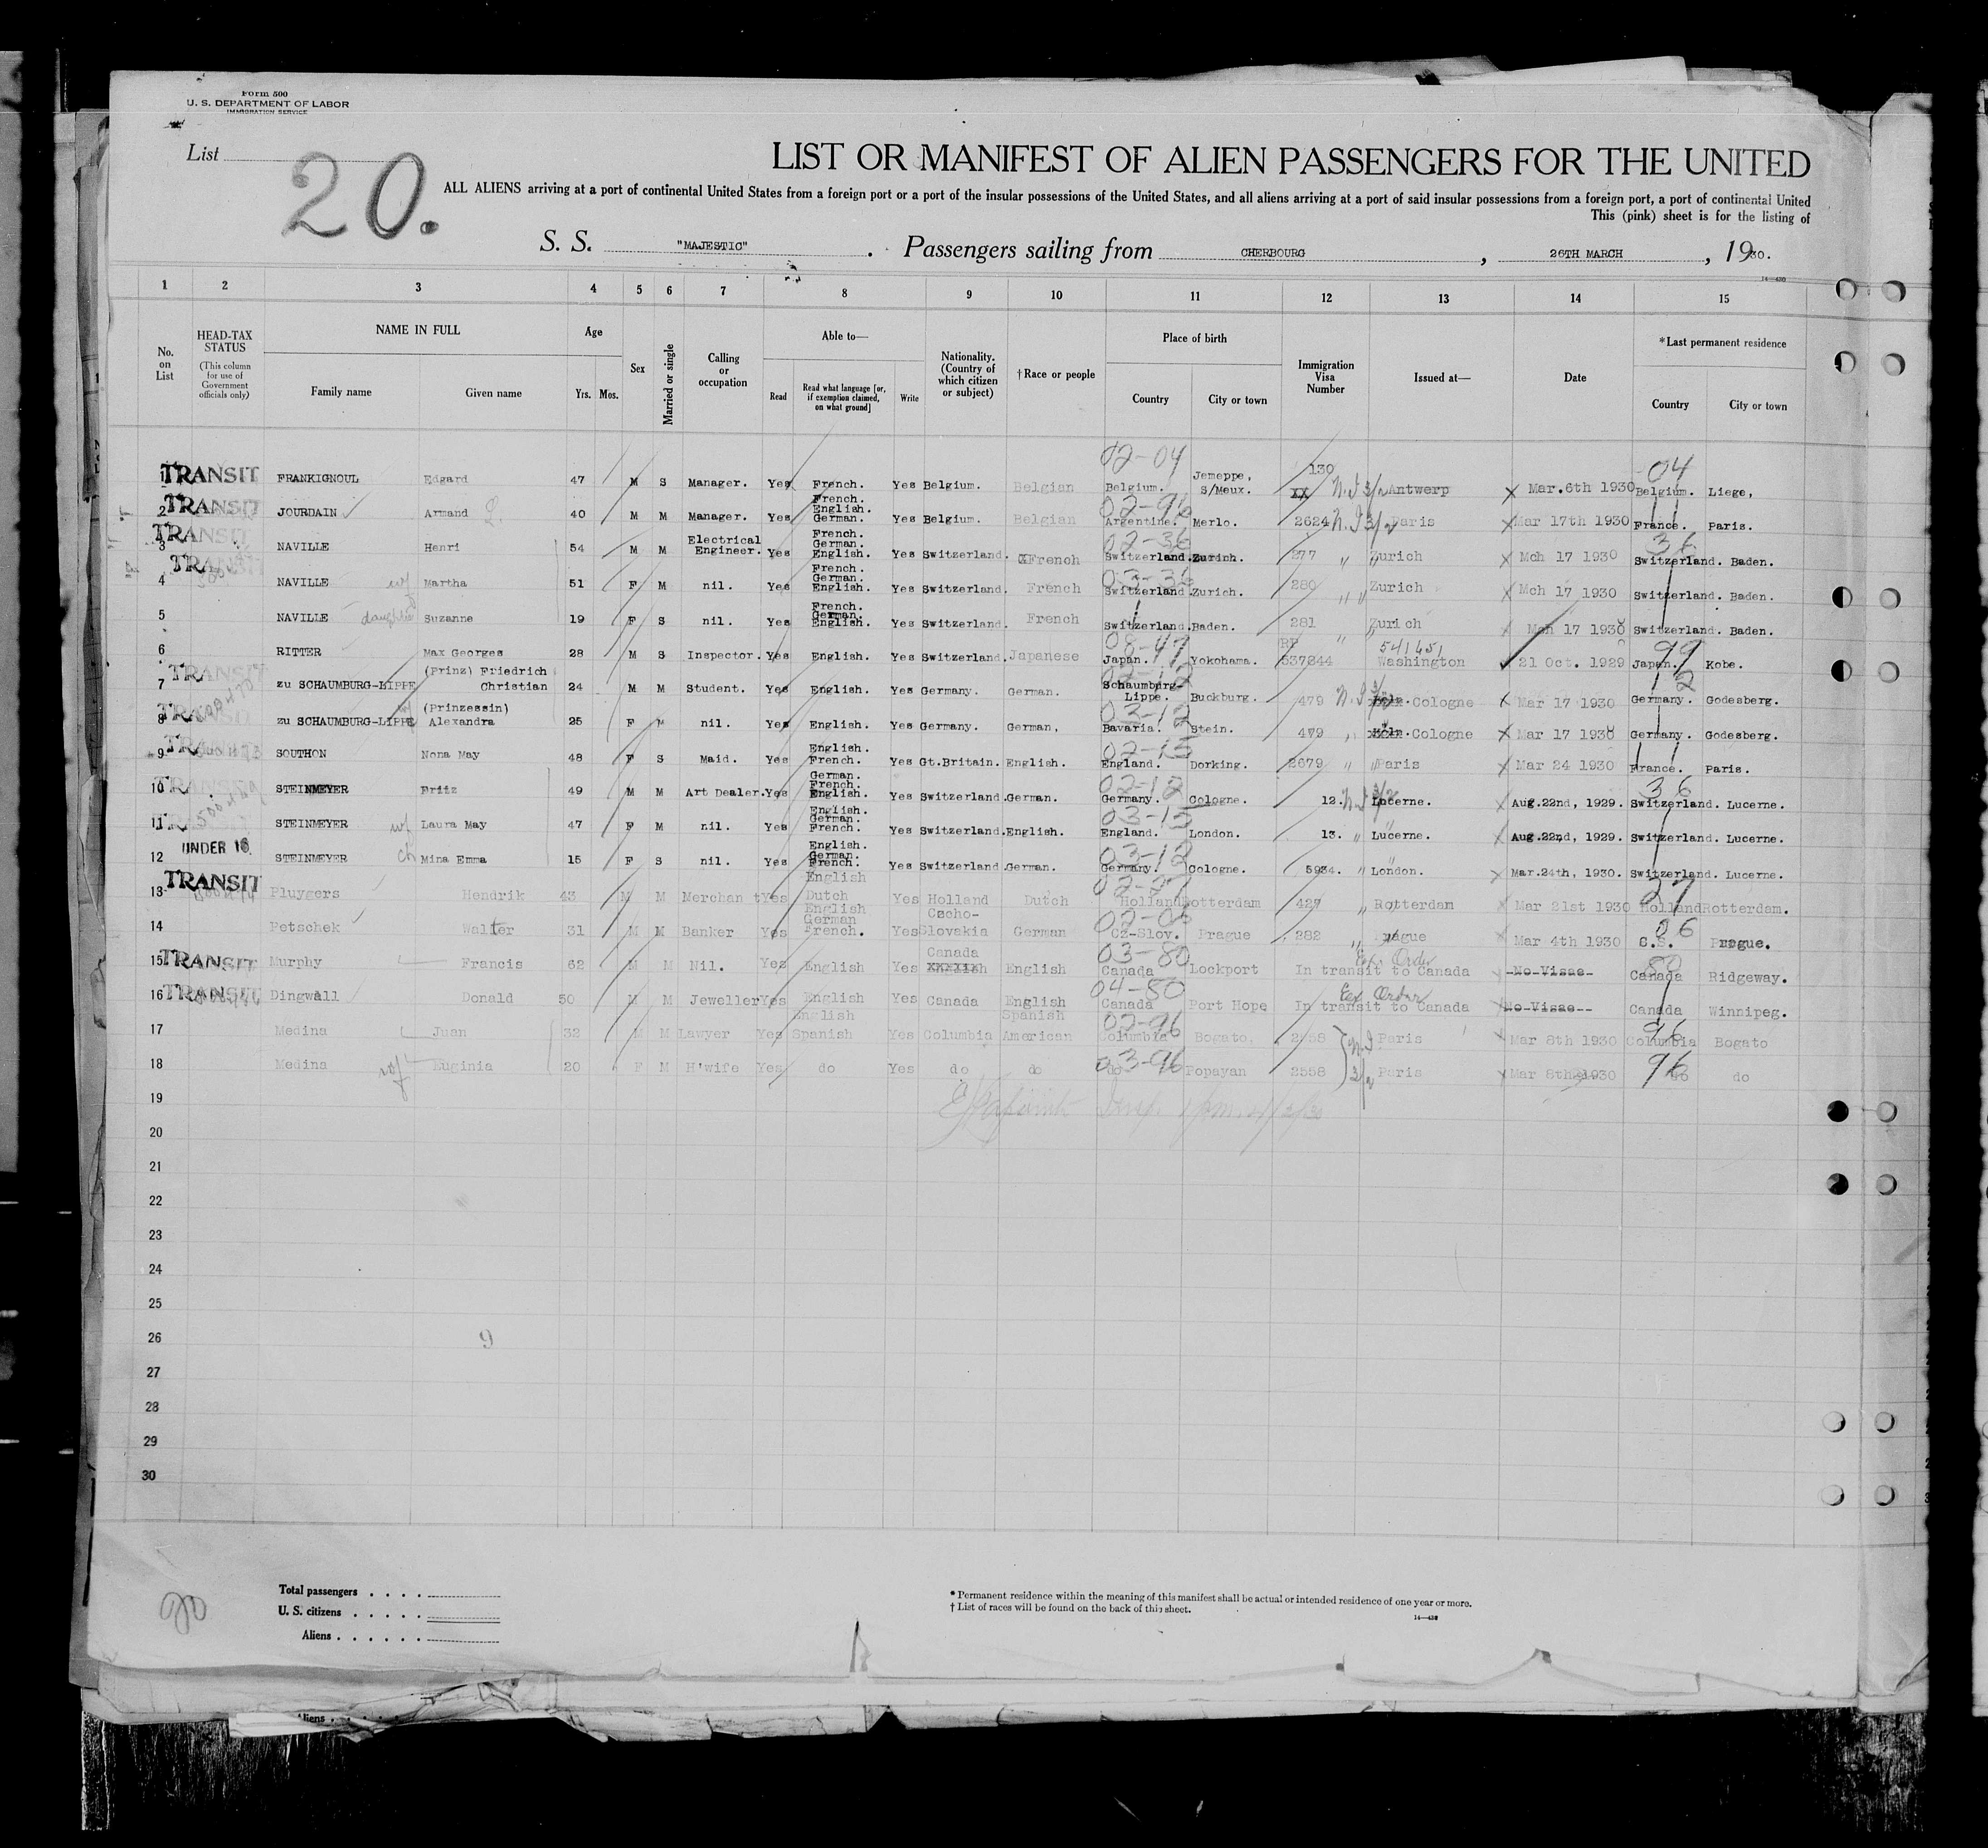 Form 500
U. S. DEPARTMENT OF LABOR
IMMIGRATION SERVICE
List
20.
LIST OR MANIFEST OF ALIEN PASSENGERS FOR THE UNITED
ALL ALIENS arriving at a port of continental United States from a foreign port or a port of the insular possessions of the United States, and all aliens arriving at a port of said insular possessions from a foreign port, a port of continental United
This (pink) sheet is for the listing of
S. S. "MAJESTIC" . Passengers sailing from CHERBOURG , 26TH MARCH , 1930.
14—430
1 2 3 4 5 6 7 8 9 10 11 12 13 14 15
No. on List
HEAD-TAX STATUS (This column for use of Government officials only)
NAME IN FULL
Family name Given name
Age
Yrs. Mos.
Sex
Married or single
Calling or occupation
Able to—
Read Read what language [or, if exemption claimed, on what ground] Write
Nationality. (Country of which citizen or subject)
†Race or people
Place of birth
Country City or town
Immigration Visa Number
Issued at—
Date
*Last permanent residence
Country City or town
1 TRANSIT FRANKIGNOUL Edgard 47 M S Manager. Yes French. Yes Belgium. Belgian 02-04 Belgium. Jemeppe, S/Meux. 130 XX Antwerp X Mar.6th 1930 04 Belgium. Liege,
2 TRANSIT JOURDAIN Armand 40 M M Manager. Yes French. English. German. Yes Belgium. Belgian 02-96 Argentine. Merlo. 2624 Paris X Mar 17th 1930 France. Paris.
3 TRANSIT NAVILLE Henri 54 M M Electrical Engineer. Yes French. German. English. Yes Switzerland. French 02-36 Switzerland. Zurich. 277 " Zurich X Mch 17 1930 36 Switzerland. Baden.
4 NAVILLE wf Martha 51 F M nil. Yes French. German. English. Yes Switzerland. French 03-36 Switzerland. Zurich. 280 " Zurich X Mch 17 1930 Switzerland. Baden.
5 NAVILLE daughter Suzanne 19 F S nil. Yes French. German. English. Yes Switzerland. French Switzerland. Baden. 281 " Zurich Mch 17 1930 Switzerland. Baden.
6 RITTER Max Georges 28 M S Inspector. Yes English. Yes Switzerland. Japanese 08-47 Japan. Yokohama. RP 537844 541451 Washington 21 Oct. 1929 99 Japan. Kobe.
7 TRANSIT zu SCHAUMBURG-LIPPE (Prinz) Friedrich Christian 24 M M Student. Yes English. Yes Germany. German. 02-12 Schaumburg-Lippe. Buckburg. 479 Cologne X Mar 17 1930 Germany. Godesberg.
8 zu SCHAUMBURG-LIPPE (Prinzessin) Alexandra 25 F M nil. Yes English. Yes Germany. German, 03-12 Bavaria. Stein. 479 Cologne X Mar 17 1930 Germany. Godesberg.
9 SOUTHON Nona May 48 F S Maid. Yes English. French. Yes Gt.Britain. English. 02-15 England. Dorking. 2679 " Paris X Mar 24 1930 France. Paris.
10 STEINMEYER Fritz 49 M M Art Dealer. Yes German. French. English. Yes Switzerland. German. 02-12 Germany. Cologne. 12. Lucerne. X Aug.22nd, 1929. 36 Switzerland. Lucerne.
11 STEINMEYER wf Laura May 47 F M nil. Yes English. German. French. Yes Switzerland. English. 03-15 England. London. 13. " Lucerne. X Aug.22nd, 1929. Switzerland. Lucerne.
12 UNDER 16 STEINMEYER ch Mina Emma 15 F S nil. Yes English. German. French. Yes Switzerland. German. 03-12 Germany. Cologne. 5934. " London. X Mar.24th, 1930. Switzerland. Lucerne.
13 TRANSIT Pluygers Hendrik 43 M M Merchant Yes English Dutch Yes Holland Dutch 02-27 Holland Rotterdam 429 " Rotterdam X Mar 21st 1930 27 Holland Rotterdam.
14 Petschek Walter 31 M M Banker Yes English German French. Yes Cecho-Slovakia German 02-06 Cz-Slov. Prague 282 " Prague X Mar 4th 1930 06 C.S. Prague.
15 TRANSIT Murphy Francis 62 M M Nil. Yes English Yes Canada English 03-80 Canada Lockport In transit to Canada Ex. Order -No-Visae- 80 Canada Ridgeway.
16 TRANSIT Dingwall Donald 50 M M Jeweller Yes English Yes Canada English 04-80 Canada Port Hope In transit to Canada Ex Order No-Visae-- Canada Winnipeg.
17 Medina Juan 32 M M Lawyer Yes English Spanish Yes Columbia Spanish American 02-96 Columbia Bogato. 2558 Paris X Mar 8th 1930 96 Columbia Bogato
18 Medina wf Euginia 20 F M H'wife Yes do Yes do do 03-96 do Popayan 2558 Paris X Mar 8th 1930 96 do do
19
20
21
22
23
24
25
26 9
27
28
29
30
20
Total passengers . . . .
U. S. citizens . . . . .
Aliens . . . . . .
* Permanent residence within the meaning of this manifest shall be actual or intended residence of one year or more.
† List of races will be found on the back of this sheet.
14—430
Aliens